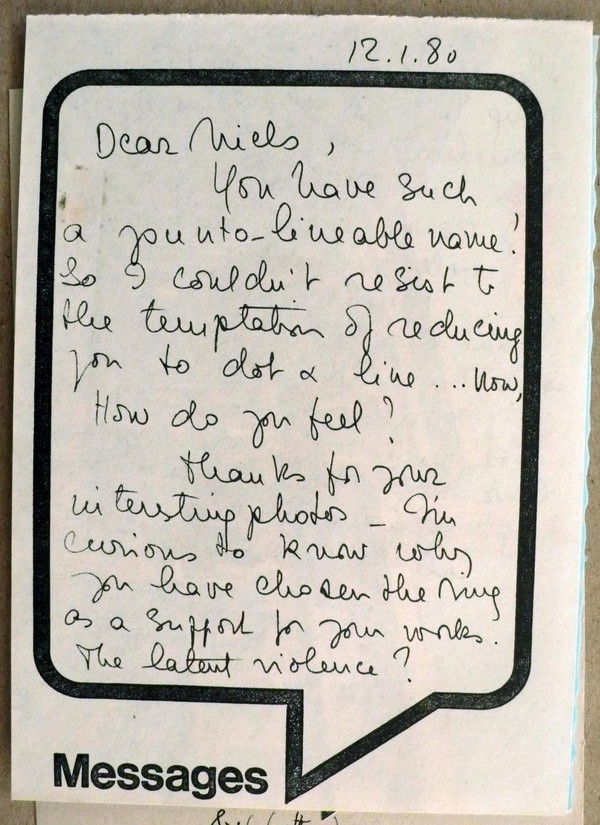 12.1.80
Dear Niels,
You have such
a punto-lineable name!
So I couldn't resist to
the temptation of reducing
you to dot & line ... Now,
How do you feel?
Thanks for your
interesting photos _ I'm
curious to know why
you have chosen the ring
as a support for your works.
The latent violence?
Messages